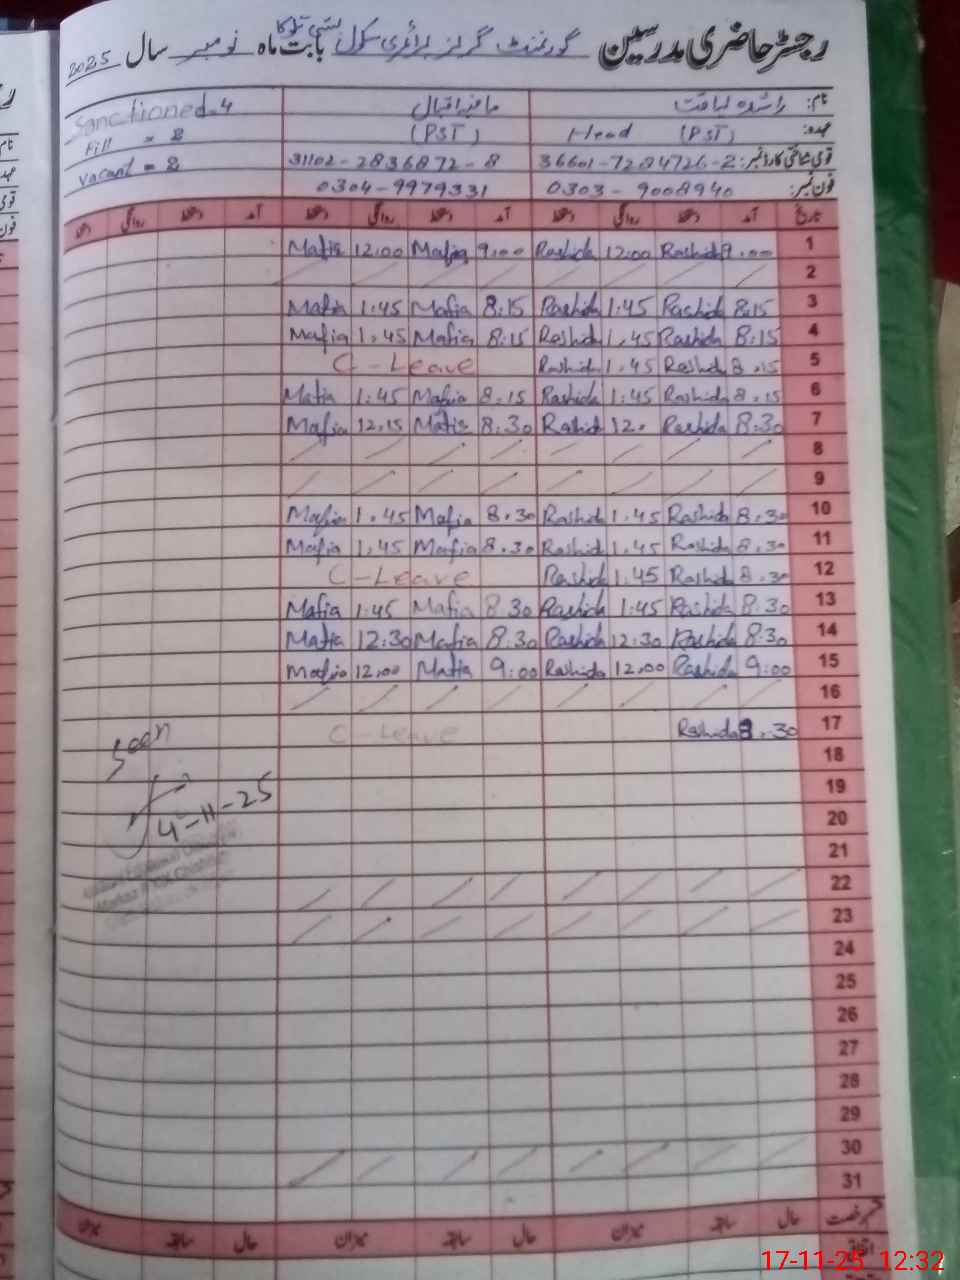 رجسٹر حاضری مدرسین گورنمنٹ گرلز پرائمری سکول بستی بابت ماہ نومبر سال 2025
نام: راشدہ لیاقت مافیہ اقبال Sanctioned=4
عہدہ: (PST) Head (PST) Fill = 2
قومی شناختی کارڈ نمبر: 36601-7284726-2 31102-2836872-8 vacant = 2
فون نمبر: 0303-9008940 0304-9979331
تاریخ آمد دستخط روانگی دستخط آمد دستخط روانگی دستخط آمد دستخط روانگی دستخط
1 9.00 Rashida 12:00 Rashida 9.00 Mafia 12:00 Mafia
2
3 8:15 Rashida 1:45 Rashida 8:15 Mafia 1:45 Mafia
4 8:15 Rashida 1.45 Rashida 8:15 Mafia 1.45 Mafia
5 8.15 Rashida 1.45 Rashida C-Leave
6 8.15 Rashida 1:45 Rashida 8.15 Mafia 1:45 Mafia
7 8:30 Rashida 12. Rashida 8:30 Mafia 12.15 Mafia
8
9
10 8.30 Rashida 1.45 Rashida 8.30 Mafia 1.45 Mafia
11 8.30 Rashida 1.45 Rashida 8.30 Mafia 1.45 Mafia
12 8.30 Rashida 1:45 Rashida C-Leave
13 8:30 Rashida 1:45 Rashida 8.30 Mafia 1:45 Mafia
14 8:30 Rashida 12:30 Rashida 8:30 Mafia 12:30 Mafia
15 9:00 Rashida 12.00 Rashida 9:00 Mafia 12.00 Mafia
16
17 8.30 Rashida C-Leave
Seen
18
19
4-11-25
20
21
22
23
24
25
26
27
28
29
30
31
رخصت حال سابقہ میزان حال سابقہ میزان حال سابقہ میزان
اتفاقیہ
17-11-25 12:32